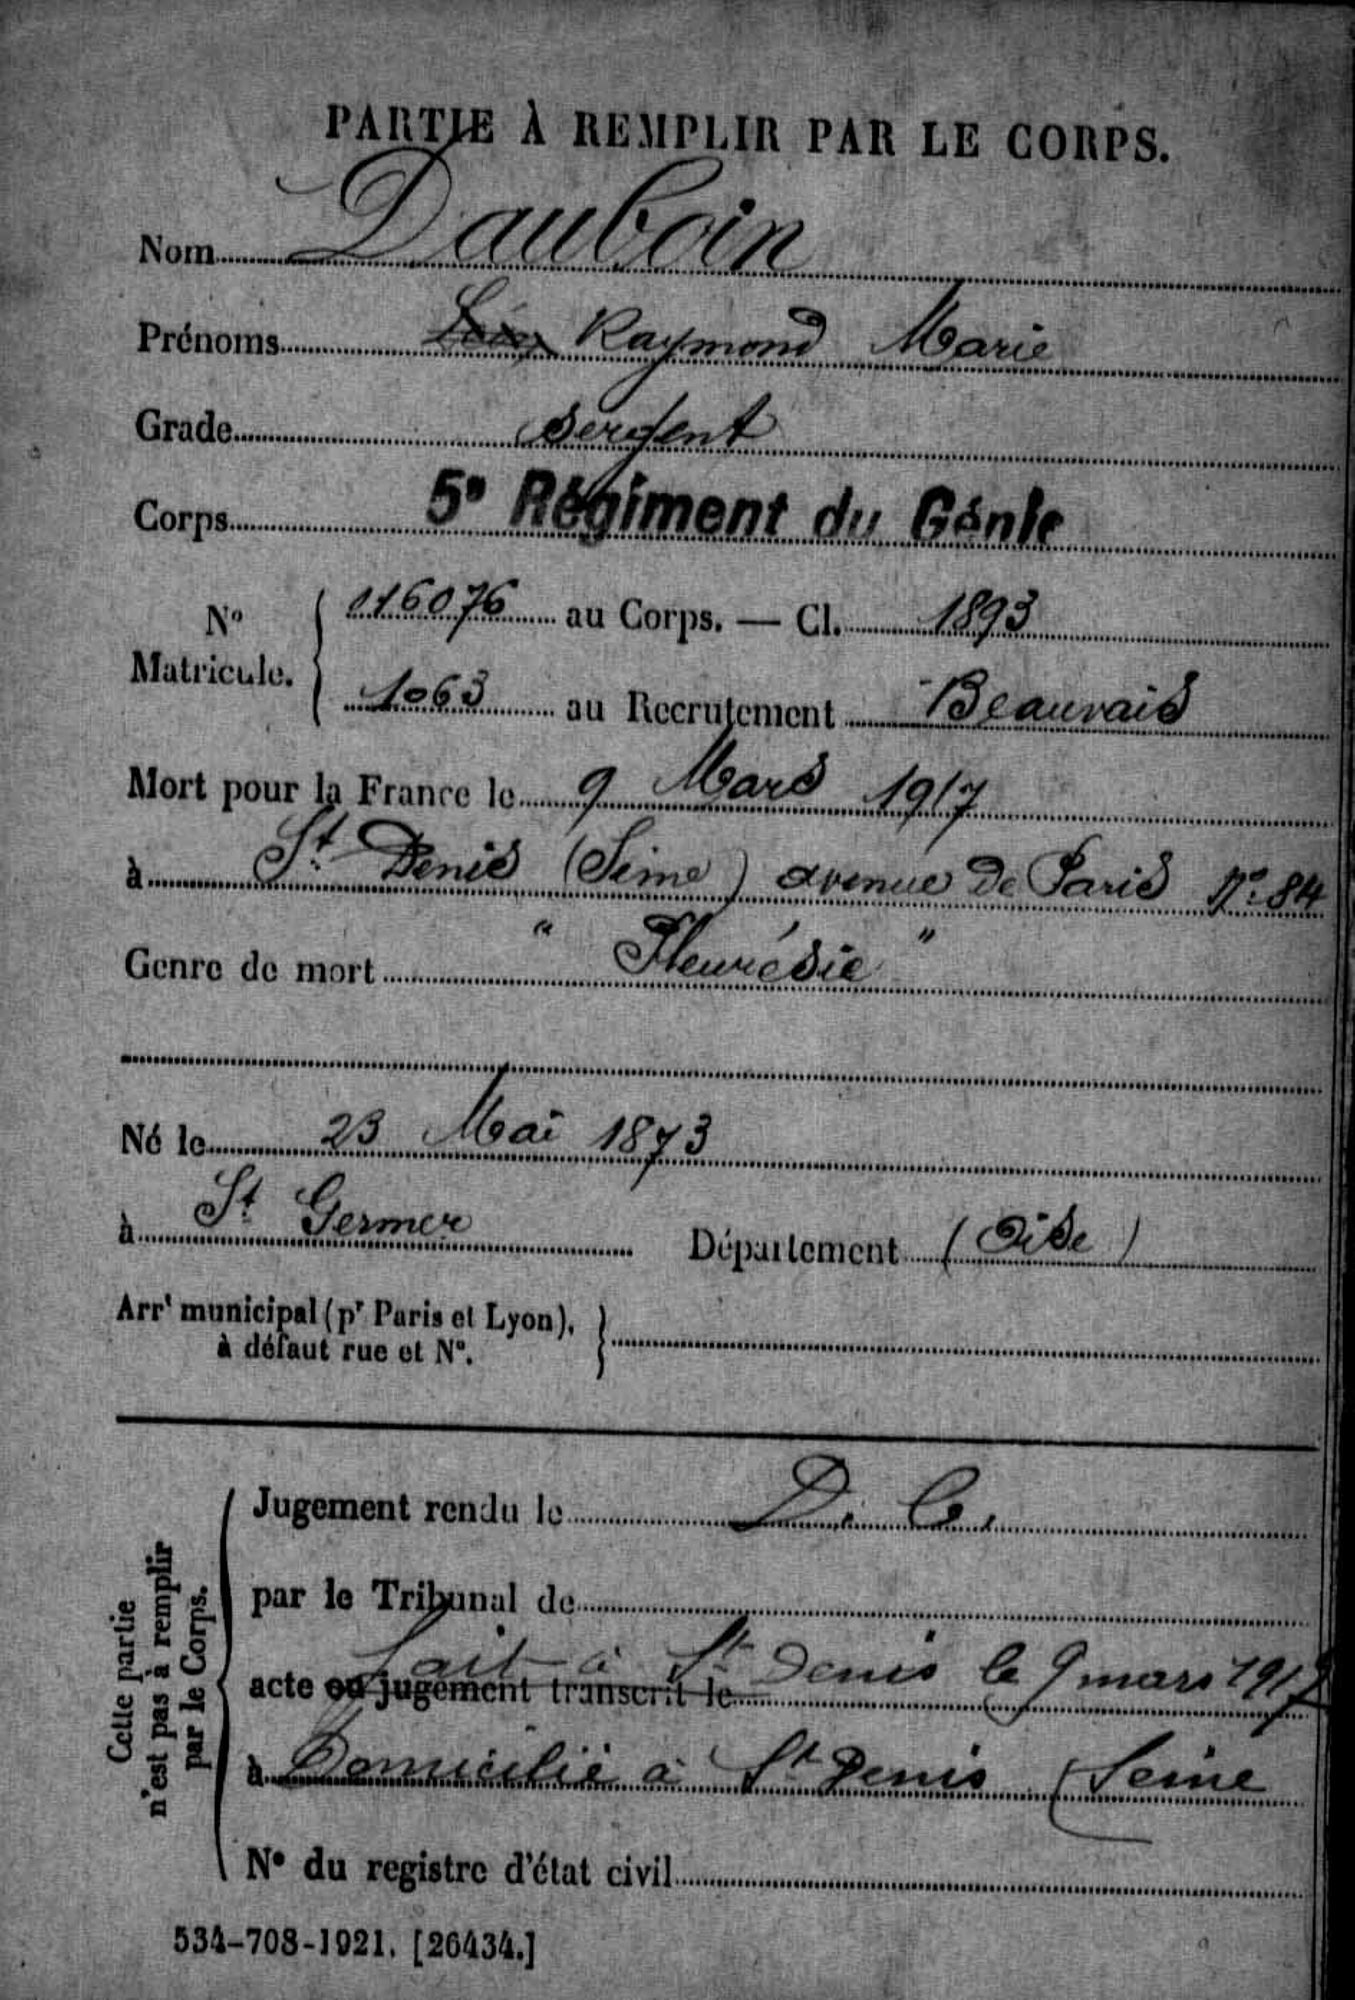 PARTIE À REMPLIR PAR LE CORPS.
Nom Dauboin
Prénoms Raymond Marie
Grade Sergent
Corps 5e Régiment du Génie
No Matricule. 016076 au Corps. — Cl. 1893
1063 au Recrutement Beauvais
Mort pour la France le 9 Mars 1917
à St Denis (Seine) avenue de Paris No 84
Genre de mort " Pleurésie "
Né le 23 Mai 1873
à St Germer Département (Oise)
Arrt municipal (pr Paris et Lyon),
à défaut rue et No.
Cette partie
n'est pas à remplir
par le Corps.
Jugement rendu le D. C.
par le Tribunal de
fait à St Denis le 9 mars 1917
acte ou jugement transcrit le
à Domicilié à St Denis (Seine
No du registre d'état civil
534-708-1921. [26434.]